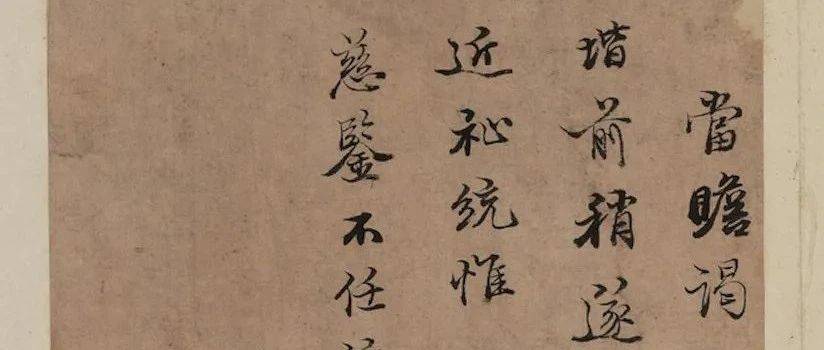 當瞻謁
堦前稍遂
近祉統惟
慈鑒不任